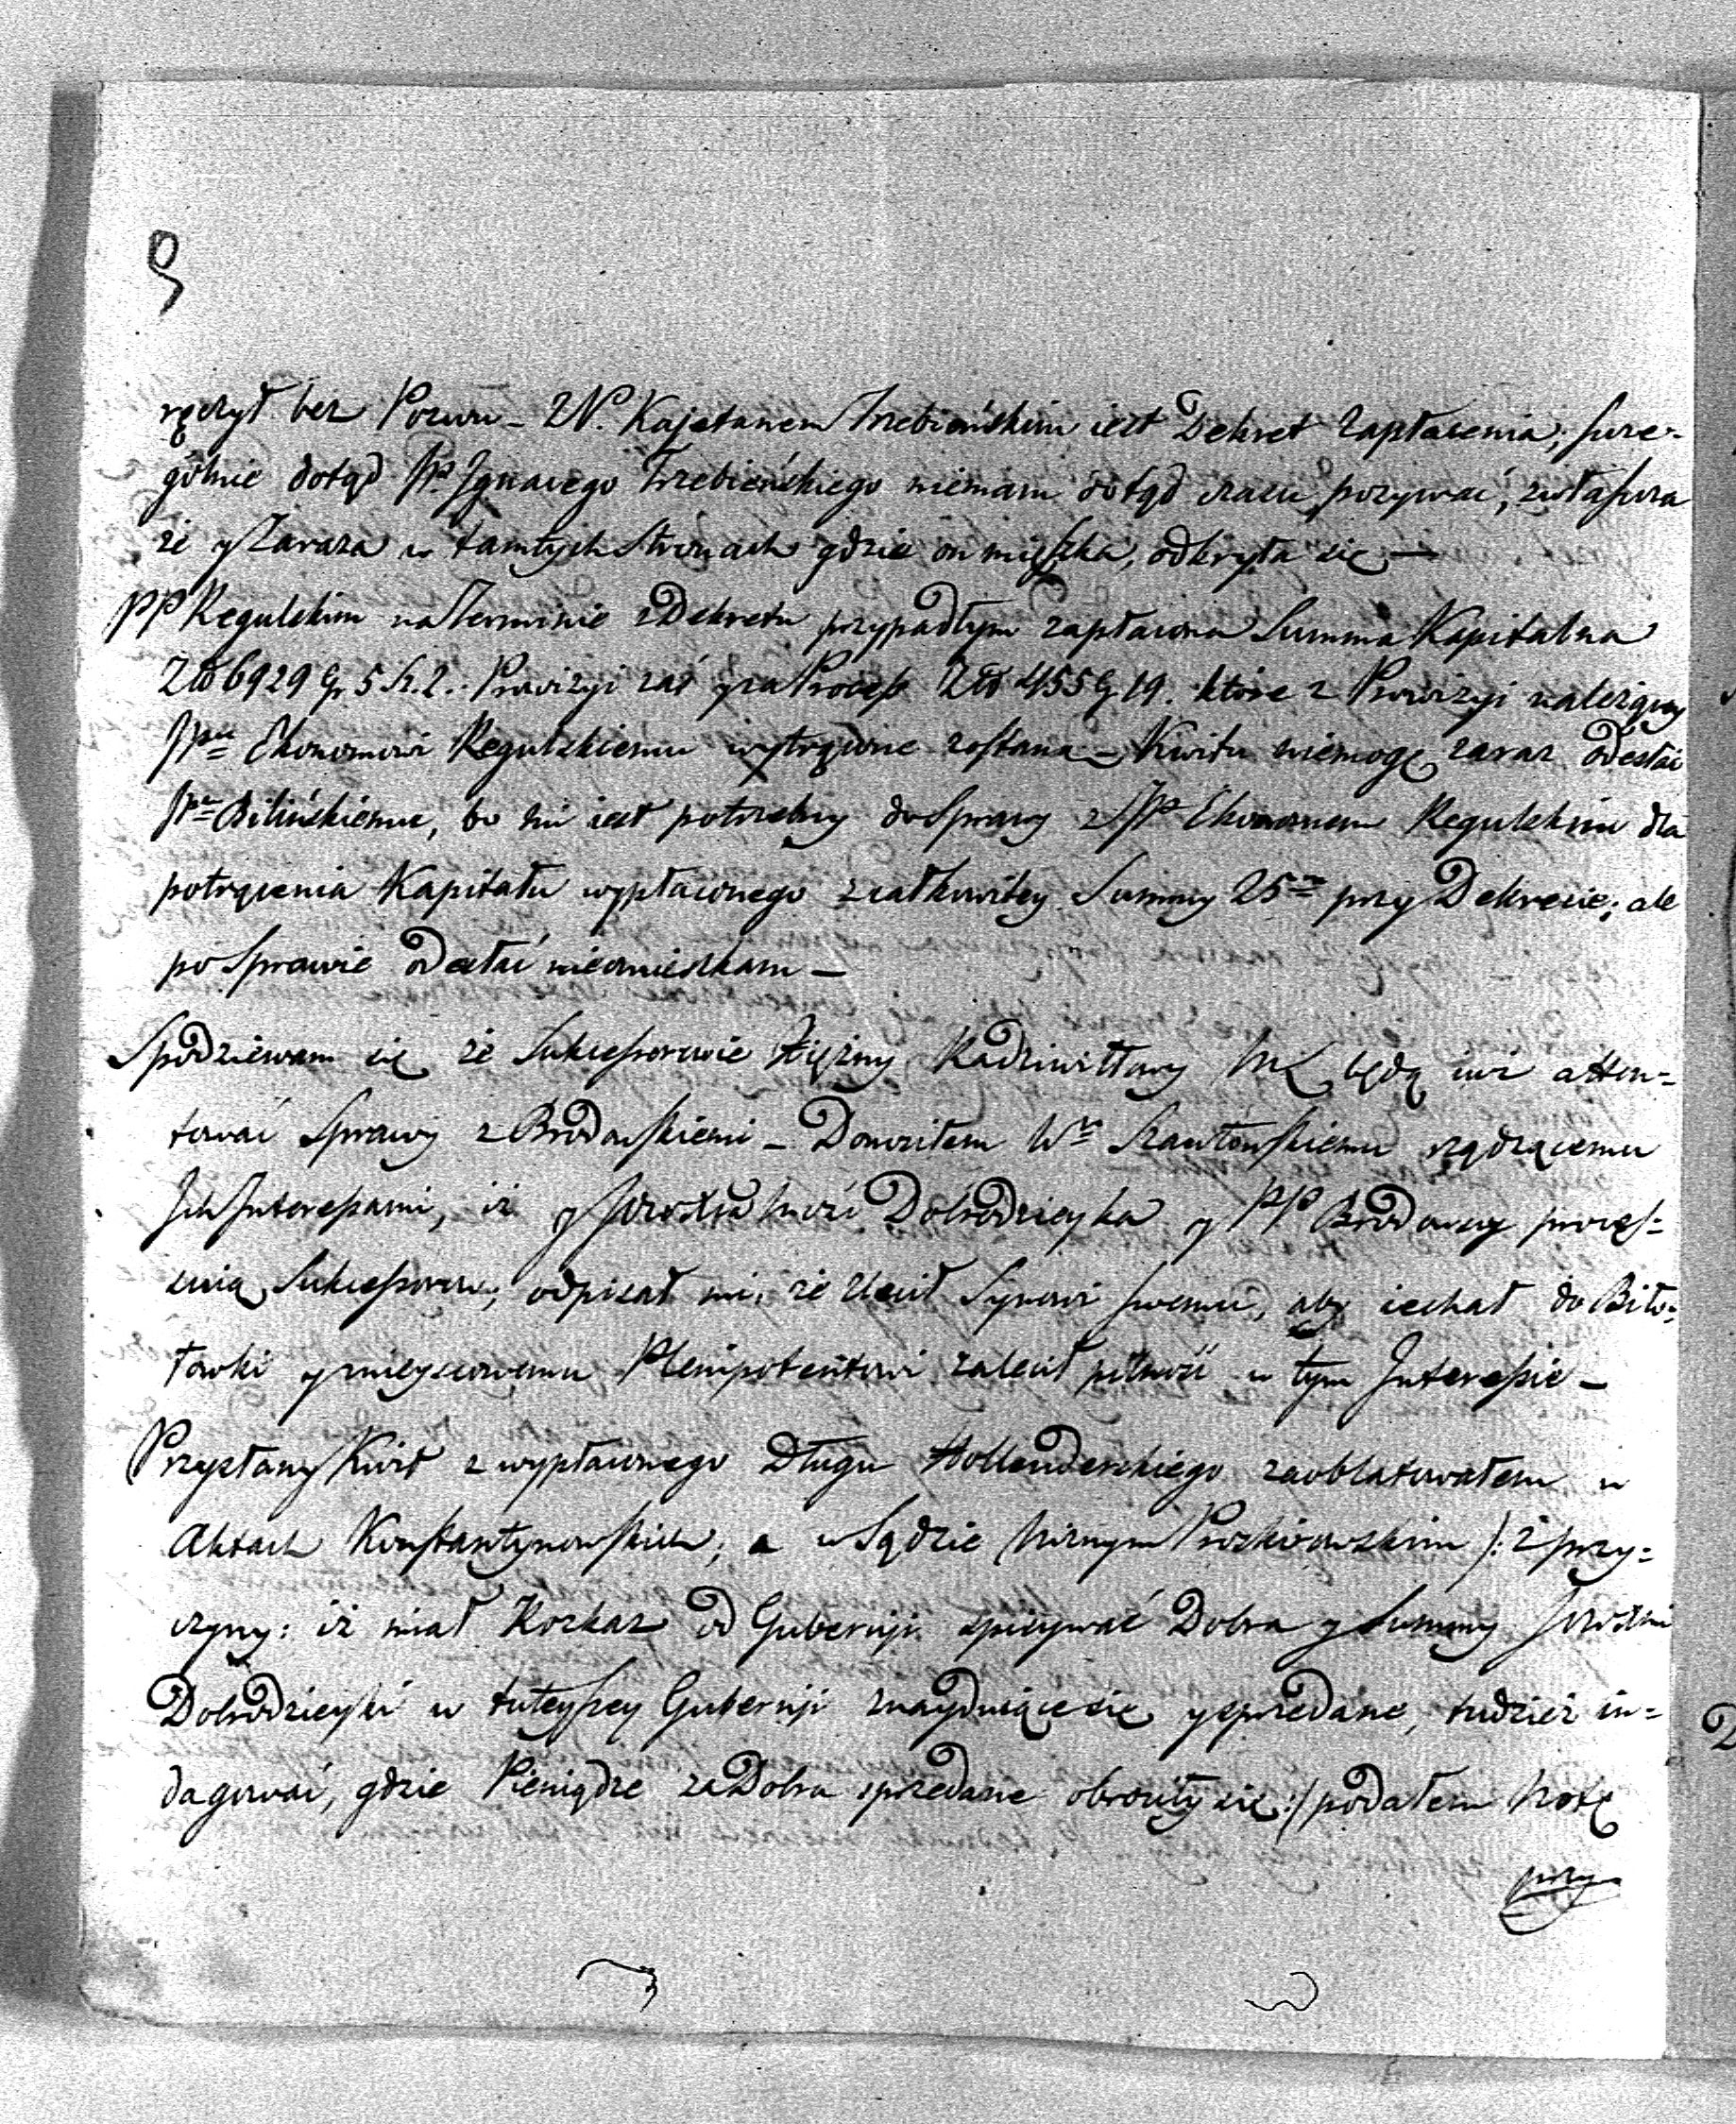 9
ręczył bez Pozwu – W. Kajetanem Trzebieńskim iest Dekret Zapłacenia, szcze-
gólnie dotąd JP. Ignacego Trzebieńskiego niemam dotąd czasu pozywać, zwłaszcza
że y Zaraza w tamtych stronach gdzie on mieszka, odkryła się –
PP Regulskim na Terminie z Dekretu przypadłym zapłacona Summa Kapitalna
Zł 6929 Gr 5 Sz. 2. Prowizyi zaś y za Process Zł 455 G 19. które z Prowizyi należącey
JPu Ekonomowi Regulskiemu wytrącone zostaną – Kwitu niemogę zaraz odesłać
JPu Bilińskiemu, bo mi iest potrzebny do Sprawy z JP Ekonomem Regulskim dla
potrącenia Kapitału wypłaconego z całkowitey Summy 25m przy Dekrecie; ale
po Sprawie odesłać nieomieszkam –
Spodziewam się że Sukcessorowie Xiężny Radziwiłłowy będą iuż atten-
tować Sprawy z Brodawskiemi – Donosiłem Wu Szawłowskiemu rządzącemu
Ich Interessami, iż y Dobrodzieyka y PP Brodawscy process-
uią Sukcessorow; odpisał mi, że zlecił Synowi swemu, aby iechał do Biło-
łowki y mieyscowemu Plenipotentowi zalecił pilność w tym Interessie –
Przysłany Kwit z wypłaconego Długu Hollenderskiego zaoblatowałem w
Aktach Konstantynowskich, a w Sądzie Niznym Proskirowskim /: z przy-
czyny: iż miał Rozkaz od Gubernji spisywać Dobra y Summy
Dobrodzieyki w tuteyszey Gubernji znayduiące się y sprzedane, tudzież in-
dagować, gdzie Pieniądze za Dobra sprzedane obrociły się :/ podałem Notę
przy